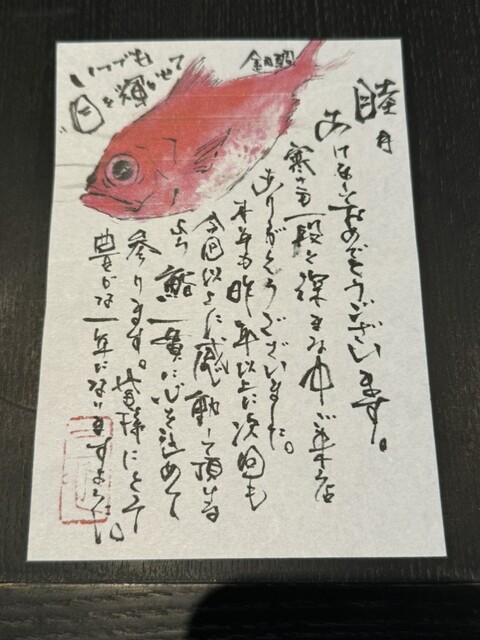 睦月
あけましておめでとうございます。
寒さも一段と深まる中ご来店
ありがとうございました。
本年も昨年以上に次回も
今回以上に感動して頂ける
よう鮨一貫に心を込めて
参ります。皆様にとって
豊かな一年になりますように。
金目鯛
いつでも
目を輝かせて